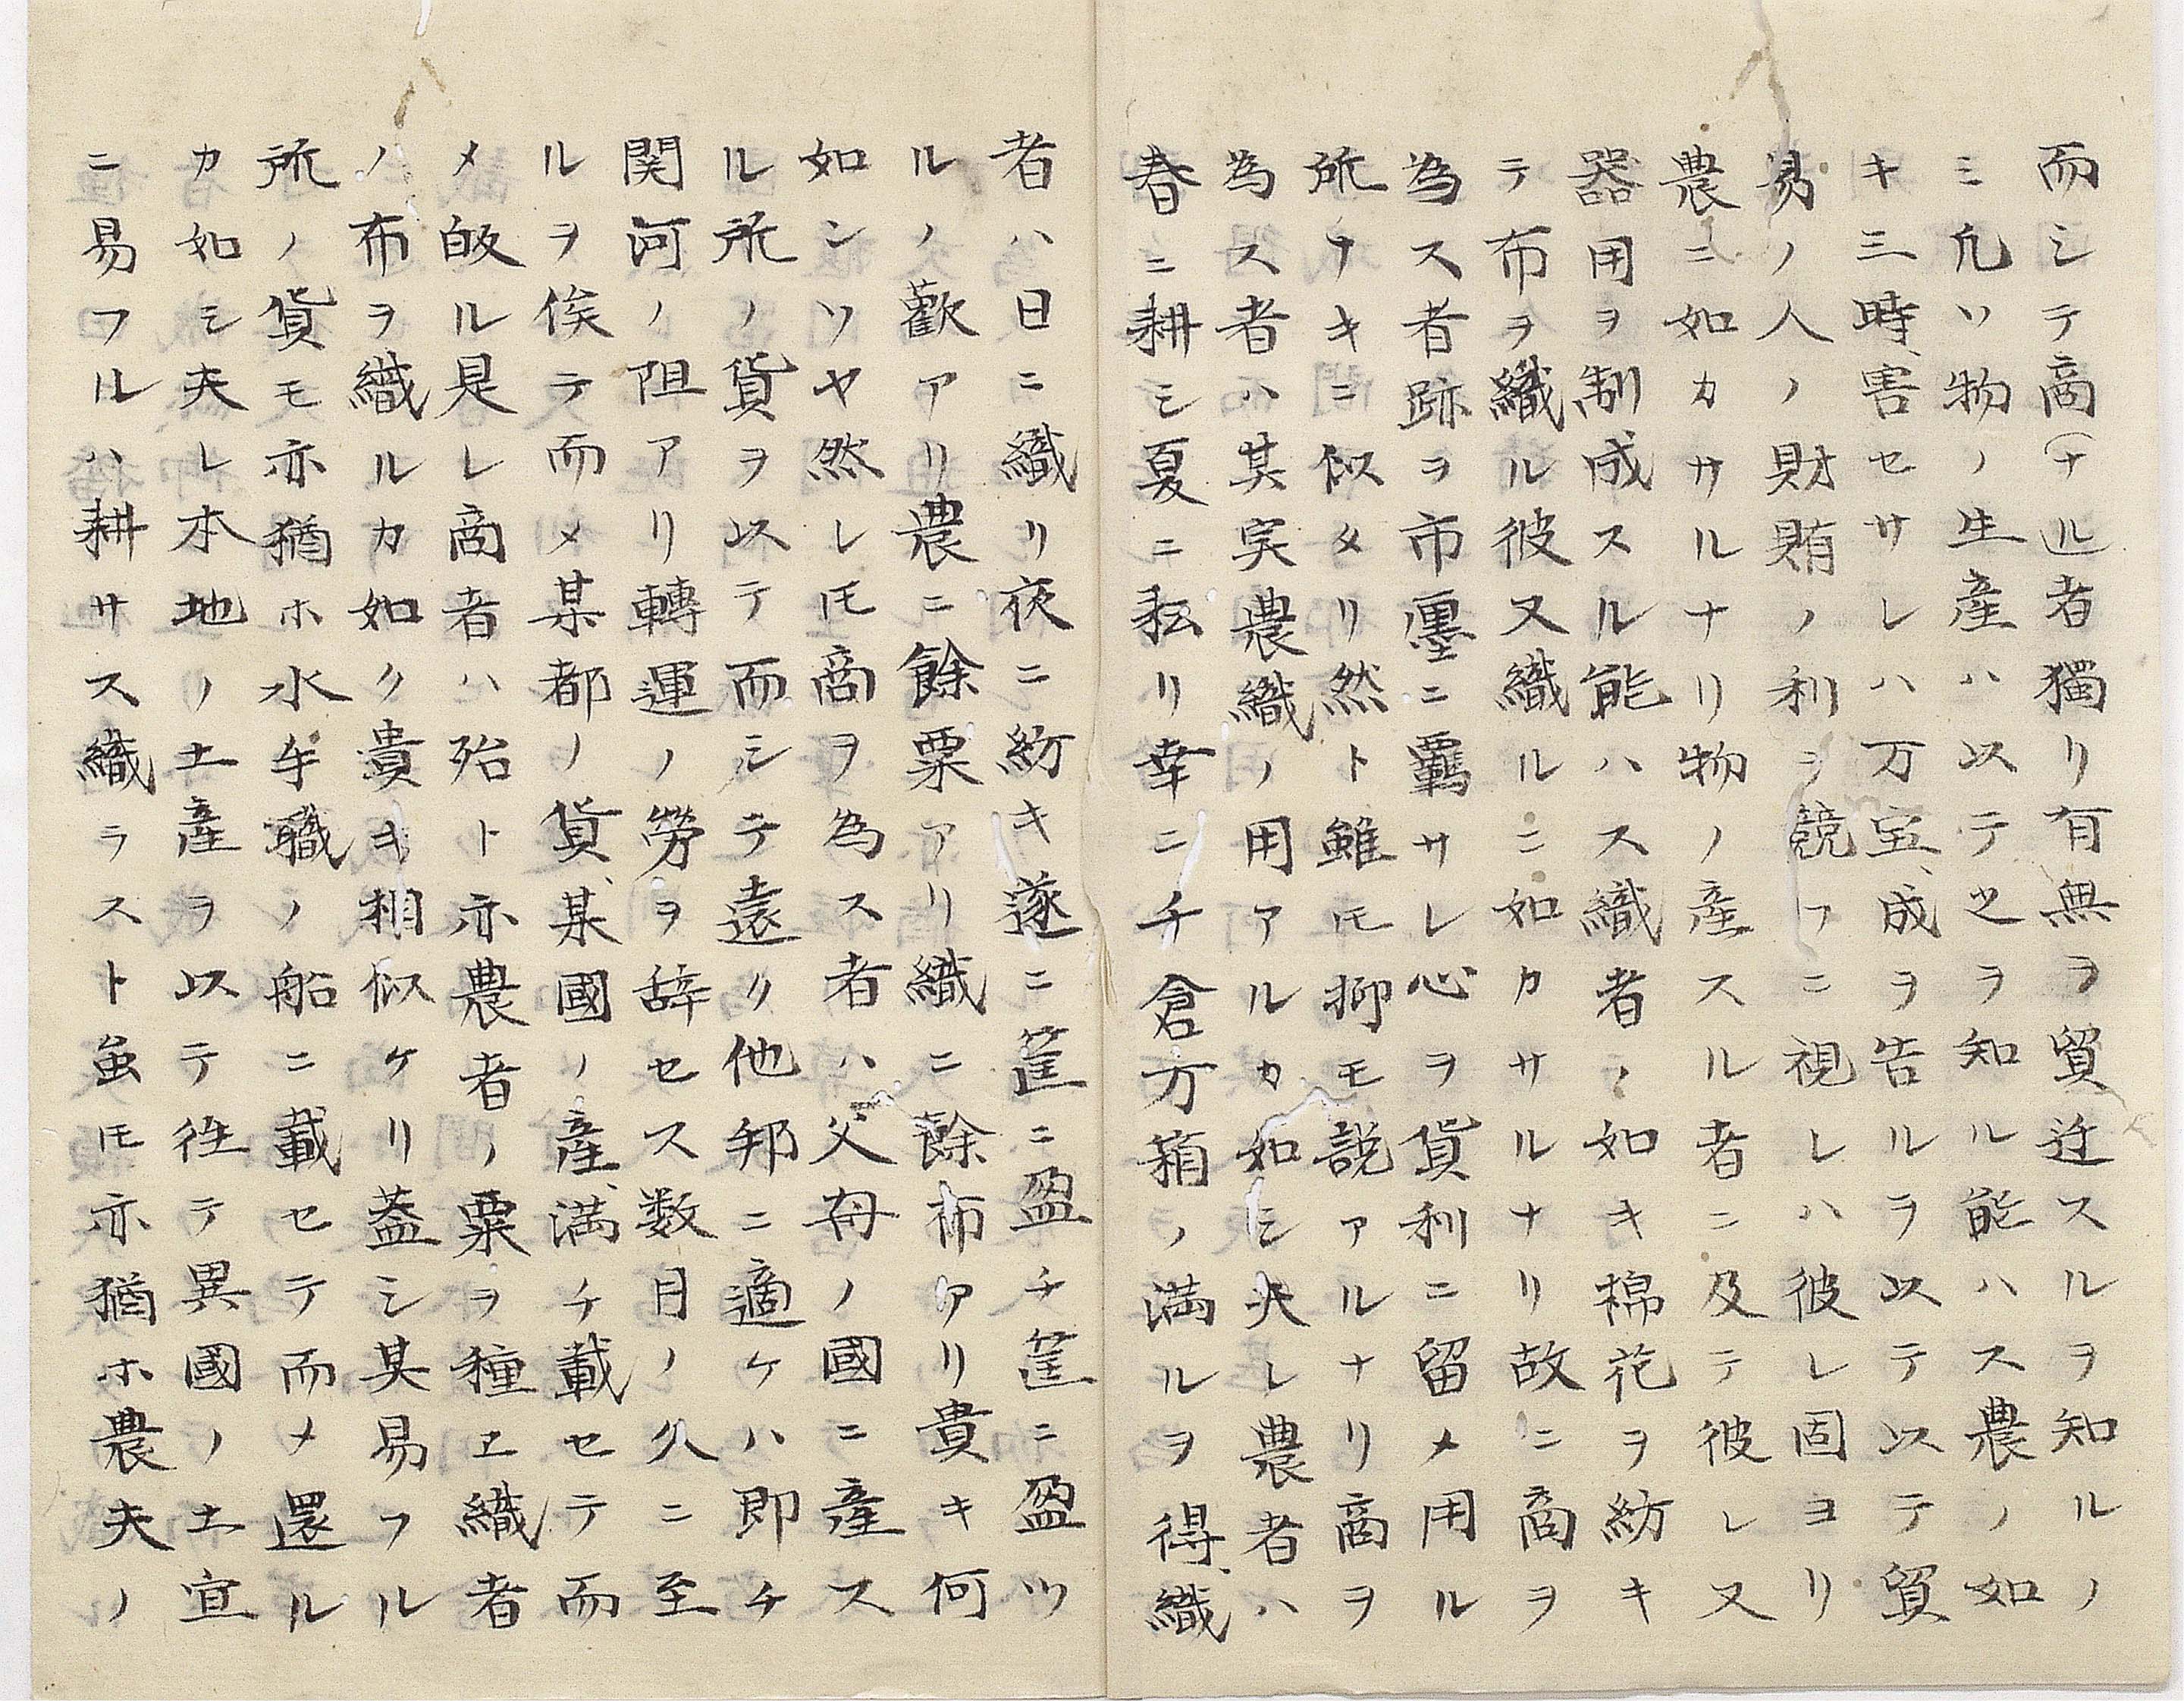 而シテ商(ナル)者獨リ有無ヲ貿迁スルヲ知ルノ
ミ凢ソ物ノ生産ハ以テ之ヲ知ル能ハス農ノ如
キ三時、害セサレハ万宝、成ヲ告ルヲ以テ以テ貿
易ノ人ノ財賄ノ利ヲ競フニ視レハ彼レ固ヨリ
農ニ如カサルナリ物ノ産スル者ニ及テ彼レ又
器用ヲ制成スル能ハス織者ノ如キ棉花ヲ紡キ
テ布ヲ織ル彼又織ルニ如カサルナリ故ニ商ヲ
為ス者跡ヲ市廛ニ羈サレ心ヲ貨利ニ留メ用ル
所ナキニ似タリ然ト雖モ抑モ説アルナリ商ヲ
為ス者ハ其実農織ノ用アルカ如シ夫レ農者ハ
春ニ耕シ夏ニ耘リ幸ニチ倉万箱ノ満ルヲ得、織
者ハ日ニ織リ夜ニ紡キ遂ニ筐ニ盈チ筐ニ盈ツ
ルノ歡アリ農ニ餘粟アリ織ニ餘布アリ貴キ何
如ンソヤ然レ𪜈商ヲ為ス者ハ父母ノ國ニ産ス
ル所ノ貨ヲ以テ而シテ遠ク他邦ニ適ケハ即チ
関河ノ阻アリ轉運ノ勞ヲ辞セス数月ノ久ニ至
ルヲ俟テ而メ某都ノ貨、某國ノ産、満チ載セテ而
メ皈ル是レ商者ハ殆ト亦農者ノ粟ヲ種ヱ織者
ノ布ヲ織ルカ如ク貴キ相似ケリ葢シ其易フル
所ノ貨モ亦猶ホ水手職ノ船ニ載セテ而メ還ル
カ如シ夫レ本地ノ土産ヲ以テ徃テ異國ノ土宜
ニ易フルハ耕サス織ラスト虽𪜈亦猶ホ農夫ノ